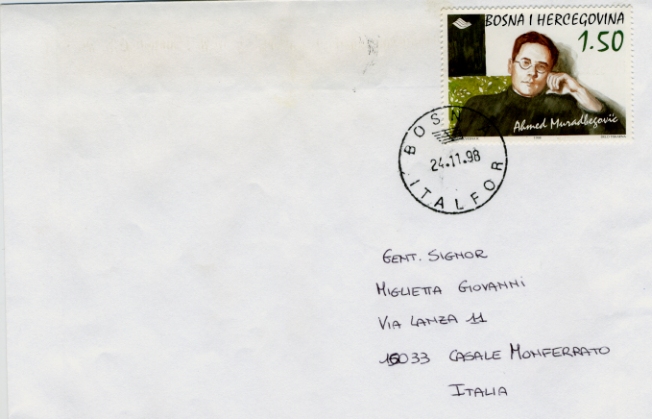 BOSNA I HERCEGOVINA
1.50
Ahmed Muradbegović
BOSN
24.11.98
ITALFOR
GENT. SIGNOR
MIGLIETTA GIOVANNI
VIA LANZA 11
15033 CASALE MONFERRATO
ITALIA